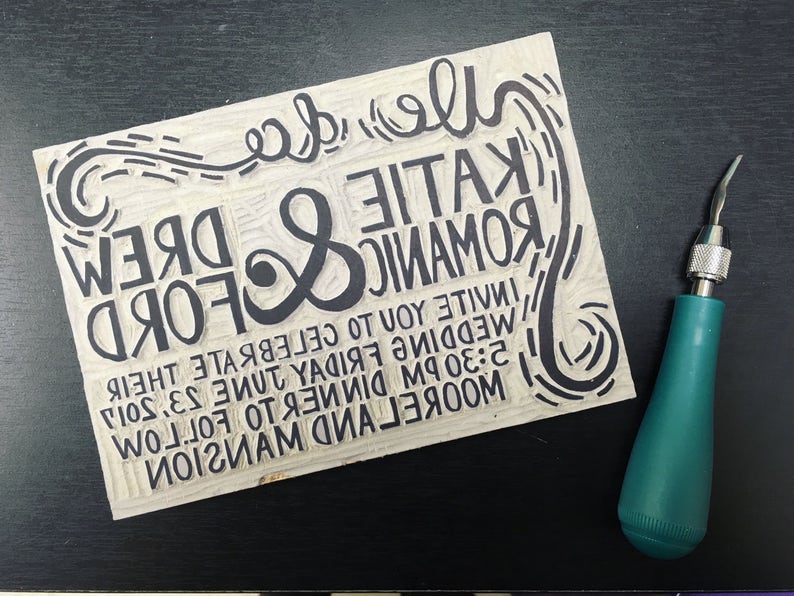 We do
KATIE & DREW
ROMANIC FORD
INVITE YOU TO CELEBRATE THEIR
WEDDING FRIDAY JUNE 23, 2017
5:30PM DINNER TO FOLLOW
MOORELAND MANSION